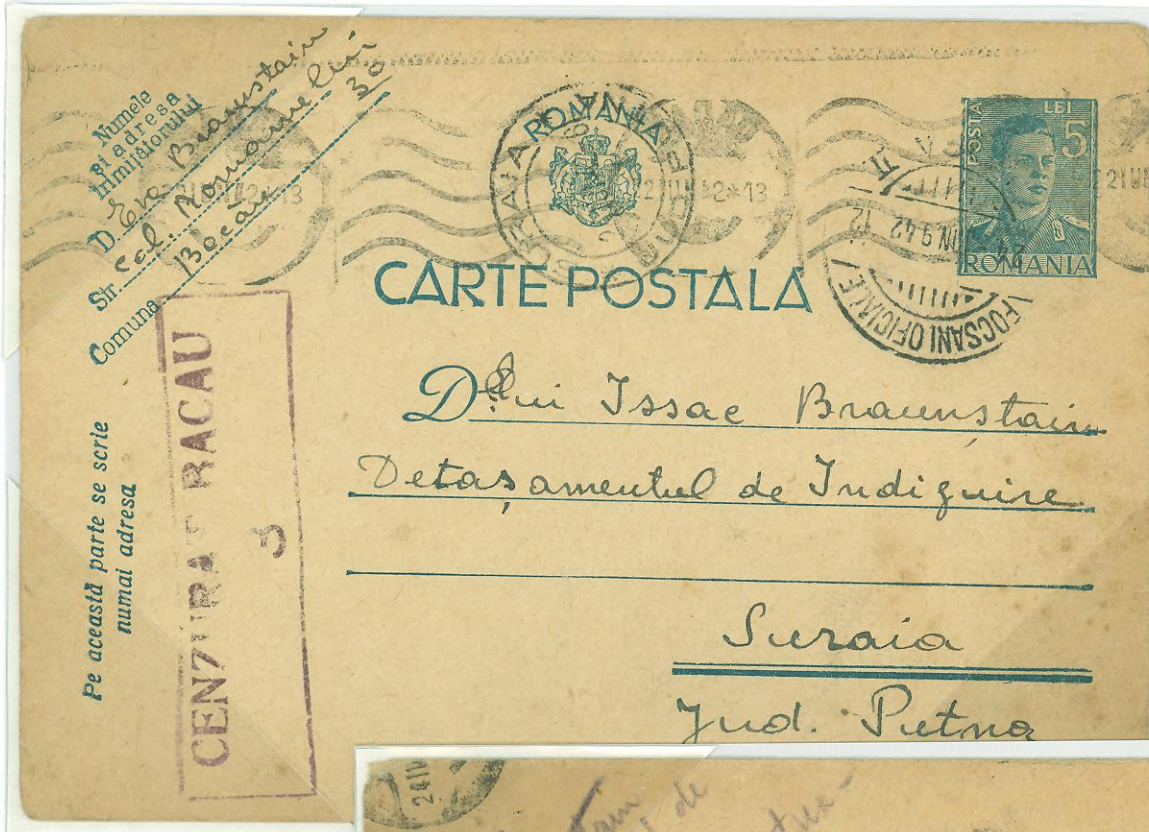 Numele
și adresa
trimițătorului
D. Eva Braunstain
Str. col.
30
Comuna Bacau
Pe această parte se scrie
numai adresa
CENZURAT BACAU
3
ROMANIA
CARTE POSTALA
POSTA LEI 5
ROMANIA
SURAIA
21 42*13
9 42 12
FOCSANI OFICIALE
D. lui Issac Braunstain
Detașamentul de Indiguire
Suraia
Jud. Putna
24
de